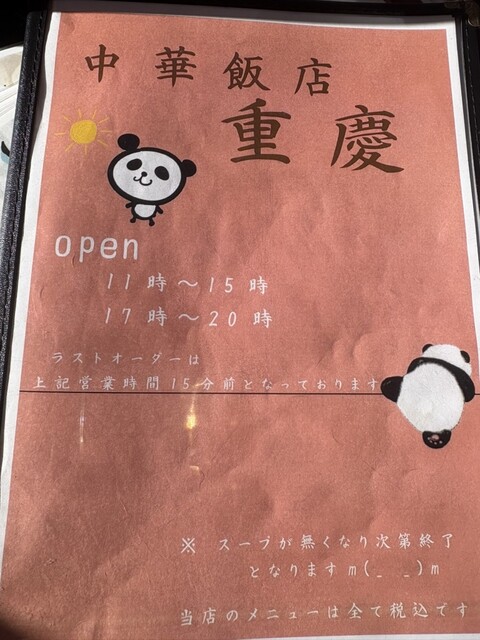 中華飯店
重慶
open
11時～15時
17時～20時
ラストオーダーは
上記営業時間15分前となっております
※ スープが無くなり次第終了
となりますm(_ _)m
当店のメニューは全て税込です